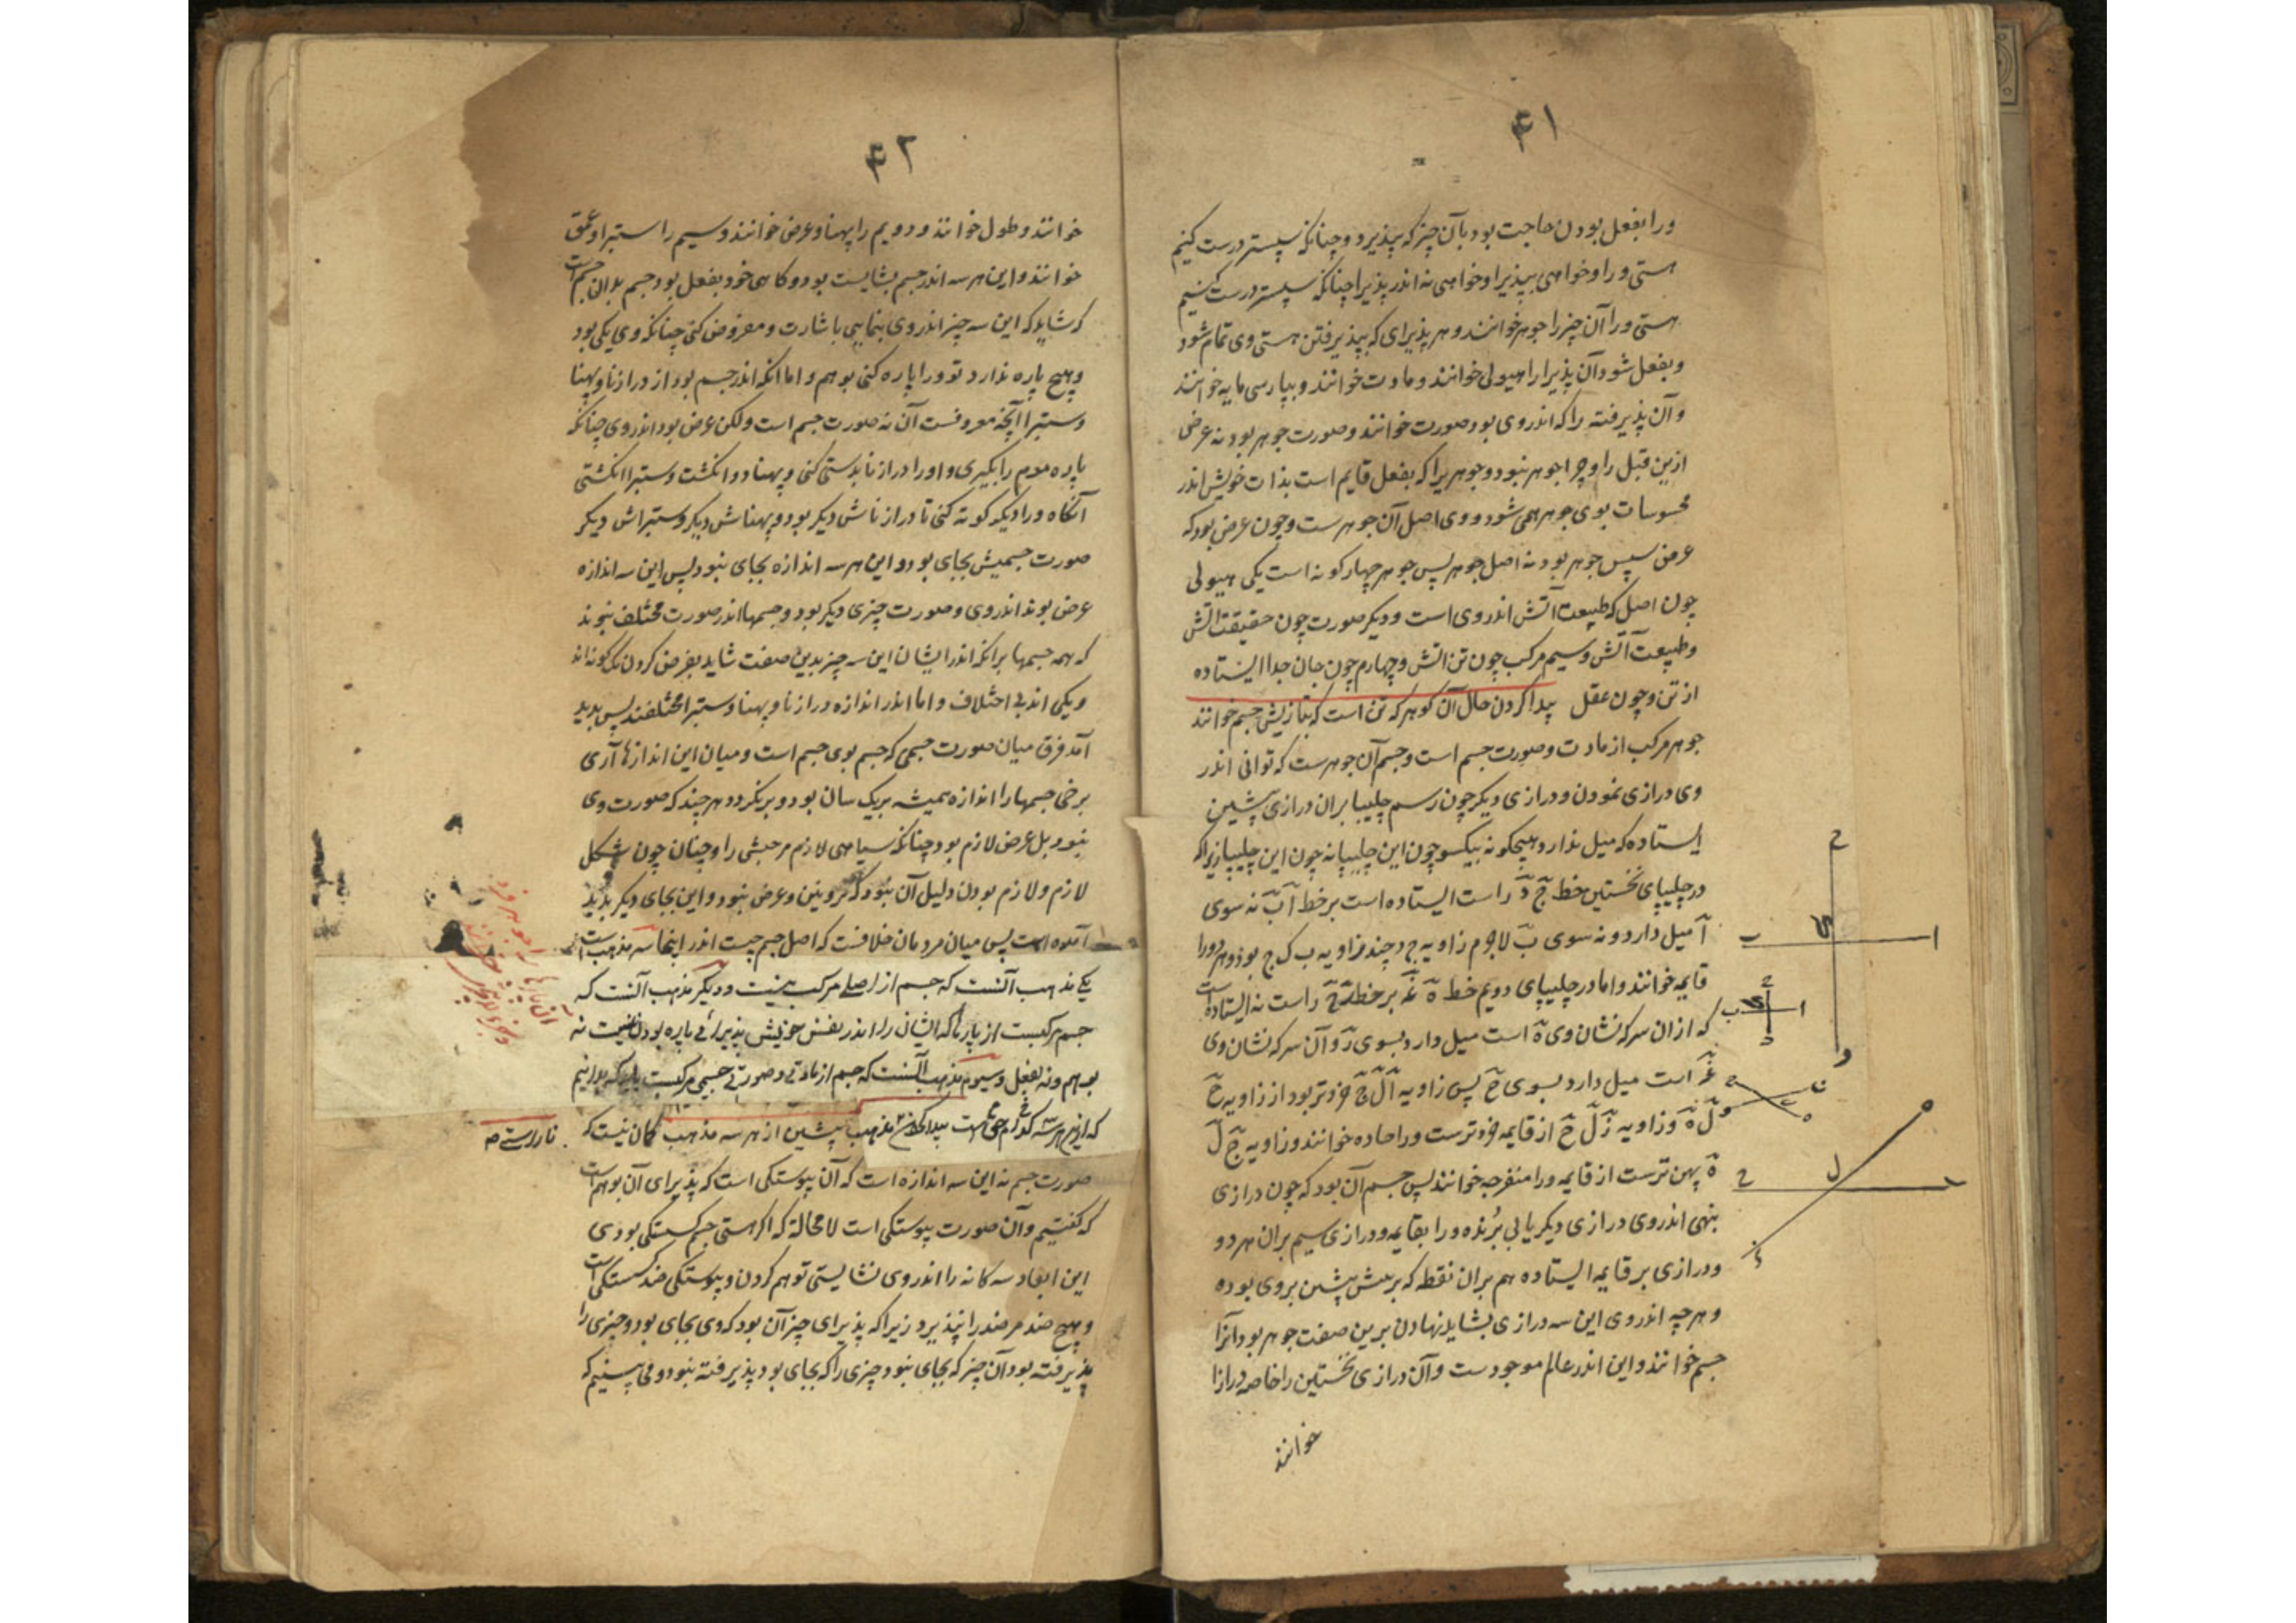 ۴۱
ورا بفعل بودن حاجت بود بآن چیز که بپذیرد و چنانکه سپستر درست کنیم
هستی ورا و خواهی بپذیرا و خواهی نه اندر پذیرا چنانکه سپستر درست کنیم
هستی ورا آن چیز را جوهر خوانند و هر پذیرای که بپذیرفتن هستی وی تمام شود
و بفعل شود آن پذیرا را هیولی خوانند و مادت خوانند و بپارسی مایه خوانند
و آن پذیرفته را که اندر وی بود صورت خوانند و صورت جوهر بود نه عرض
ازین قبل را و چرا جوهر نبود و جوهریرا که بفعل قایم است بذات خویش اندر
محسوسات بوی جوهر همی شود و وی اصل آن جوهرست و چون عرض بود که
عرض سپس جوهر بود نه اصل جوهر پس جوهر چهار کونه است یکی هیولی
چون اصل که طبیعت آتش اندر وی است و دیکر صورت چون حقیقت آتش
و طبیعت آتش و سیم مرکب چون تن آتش و چهارم چون جان جدا ایستاده
از تن و چون عقل پیدا کردن حال آن کوهر که تن است که بتازیش جسم خوانند
جوهر مرکب از مادت و صورت جسم است و جسم آن جوهرست که توانی اندر
وی درازی نمودن و درازی دیکر چون رسم چلیپا بران درازی پیشین
ایستاده که میل ندارد هیچکونه بیکسو چون این چلیپا نه چون این چلیپا زیرا که
در چلیپای نخستین خط ج د راست ایستاده است بر خط ا ب نه سوی
ا میل دارد و نه سوی ب لاجرم زاویه ج د چند زاویه ب ک ج بود و هر دو را
قایمه خوانند و اما در چلیپای دویم خط ه بر خط راست نه ایستاده است
که ازان سر که نشان وی ه است میل دارد بسوی ز و آن سر که نشان وی
است میل دارد بسوی ح پس زاویه فزونتر بود از زاویه ح
ل ه و زاویه ز ل ح از قایمه فروترست ورا حاده خوانند و زاویه ح ل
ه پهن ترست از قایمه ورا منفرجه خوانند پس جسم آن بود که چون درازی
بنهی اندر وی درازی دیکر یابی بُرنده ورا بقایمه و درازی سیم بران هر دو
و درازی بر قایمه ایستاده هم بران نقطه که برش پیشین بروی بوده
و هر چه اندر وی این سه درازی بشاید نهادن برین صفت جوهر بود آنرا
جسم خوانند و این اندر عالم موجودست و آن درازی نخستین را خاصه درازا
خوانند
۴۲
خوانند و طول خوانند و دویم را پهنا و عرض خوانند و سیم را ستبرا و عمق
خوانند و این هر سه اندر جسم بشایست بود و کاهی خود بفعل بود جسم بدان جسم است
که شاید که این سه چیز اندر وی بنمایی باشارت و مفروض کنی چنانکه وی یکی بود
و هیچ پاره ندارد تو ورا پاره کنی بوهم و اما انکه اندر جسم بود از درازنا و پهنا
و ستبرا آنچه معروفست آن نه صورت جسم است ولکن عرض بود اندر وی چنانکه
پاره موم را بکیری و او را درازنا بدستی کنی و پهنا دو انکشت و ستبرا انکشتی
آنکاه ورا دیکر کونه کنی تا درازناش دیکر بود و پهناش دیکر و ستبراش دیکر
صورت جسمیش بجای بود و این هر سه اندازه بجای نبود پس این سه اندازه
عرض بوند اندر وی و صورت چیزی دیکر بود و جسمها اندر صورت مختلف نبوند
که همه جسمها برانکه اندر ایشان این سه چیز بدین صفت شاید بفرض کردن یک کونه اند
و یکی اند بی اختلاف و اما اندر اندازه درازنا و پهنا و ستبرا مختلفند پس پدید
آمد فرق میان صورت جسمی که جسم بوی جسم است و میان این اندازها آری
برخی جسمها را اندازه همیشه بریک سان بود و برنکردد هر چند که صورت وی
نبود بل عرض لازم بود چنانکه سیاهی لازم مر حبشی را و چنان چون شکل
لازم و لازم بودن دلیل آن نبود که بیرونین و عرض نبود و این بجای دیکر پدید
آمده است پس میان مردمان خلافست که اصل جسم چیست اندر اینجا سه مذهب است
یکی مذهب آنست که جسم از اصلی مرکب نیست و دیکر مذهب آنست که
جسم مرکبست از پارها که ایشان را اندر نفس خویش پذیرائی پاره بودن نیست نه
بوهم و نه بفعل و سیوم مذهب آنست که جسم از مادتی و صورتی جسمی مرکبست باید که بدانیم
که ازین هر سه کدام حق است پیدا کردن مذهب پیشین از هر سه مذهب کمان نیست که
نادرستی
صورت جسم نه این سه اندازه است که آن پیوستکی است که پذیرای آن بوهم است
که کفتیم و آن صورت پیوستکی است لامحالة که اکر هستی جسم کسستکی بودی
این ابعاد سه کانه را اندر وی نشایستی توهم کردن و پیوستکی ضد کسستکی است
و هیچ ضد مر ضد را نپذیرد زیرا که پذیرای چیز آن بود که وی بجای بود و چیزی را
پذیرفته بود آن چیز که بجای نبود چیزی را که بجای بود پذیرفته نبود و می بینیم که